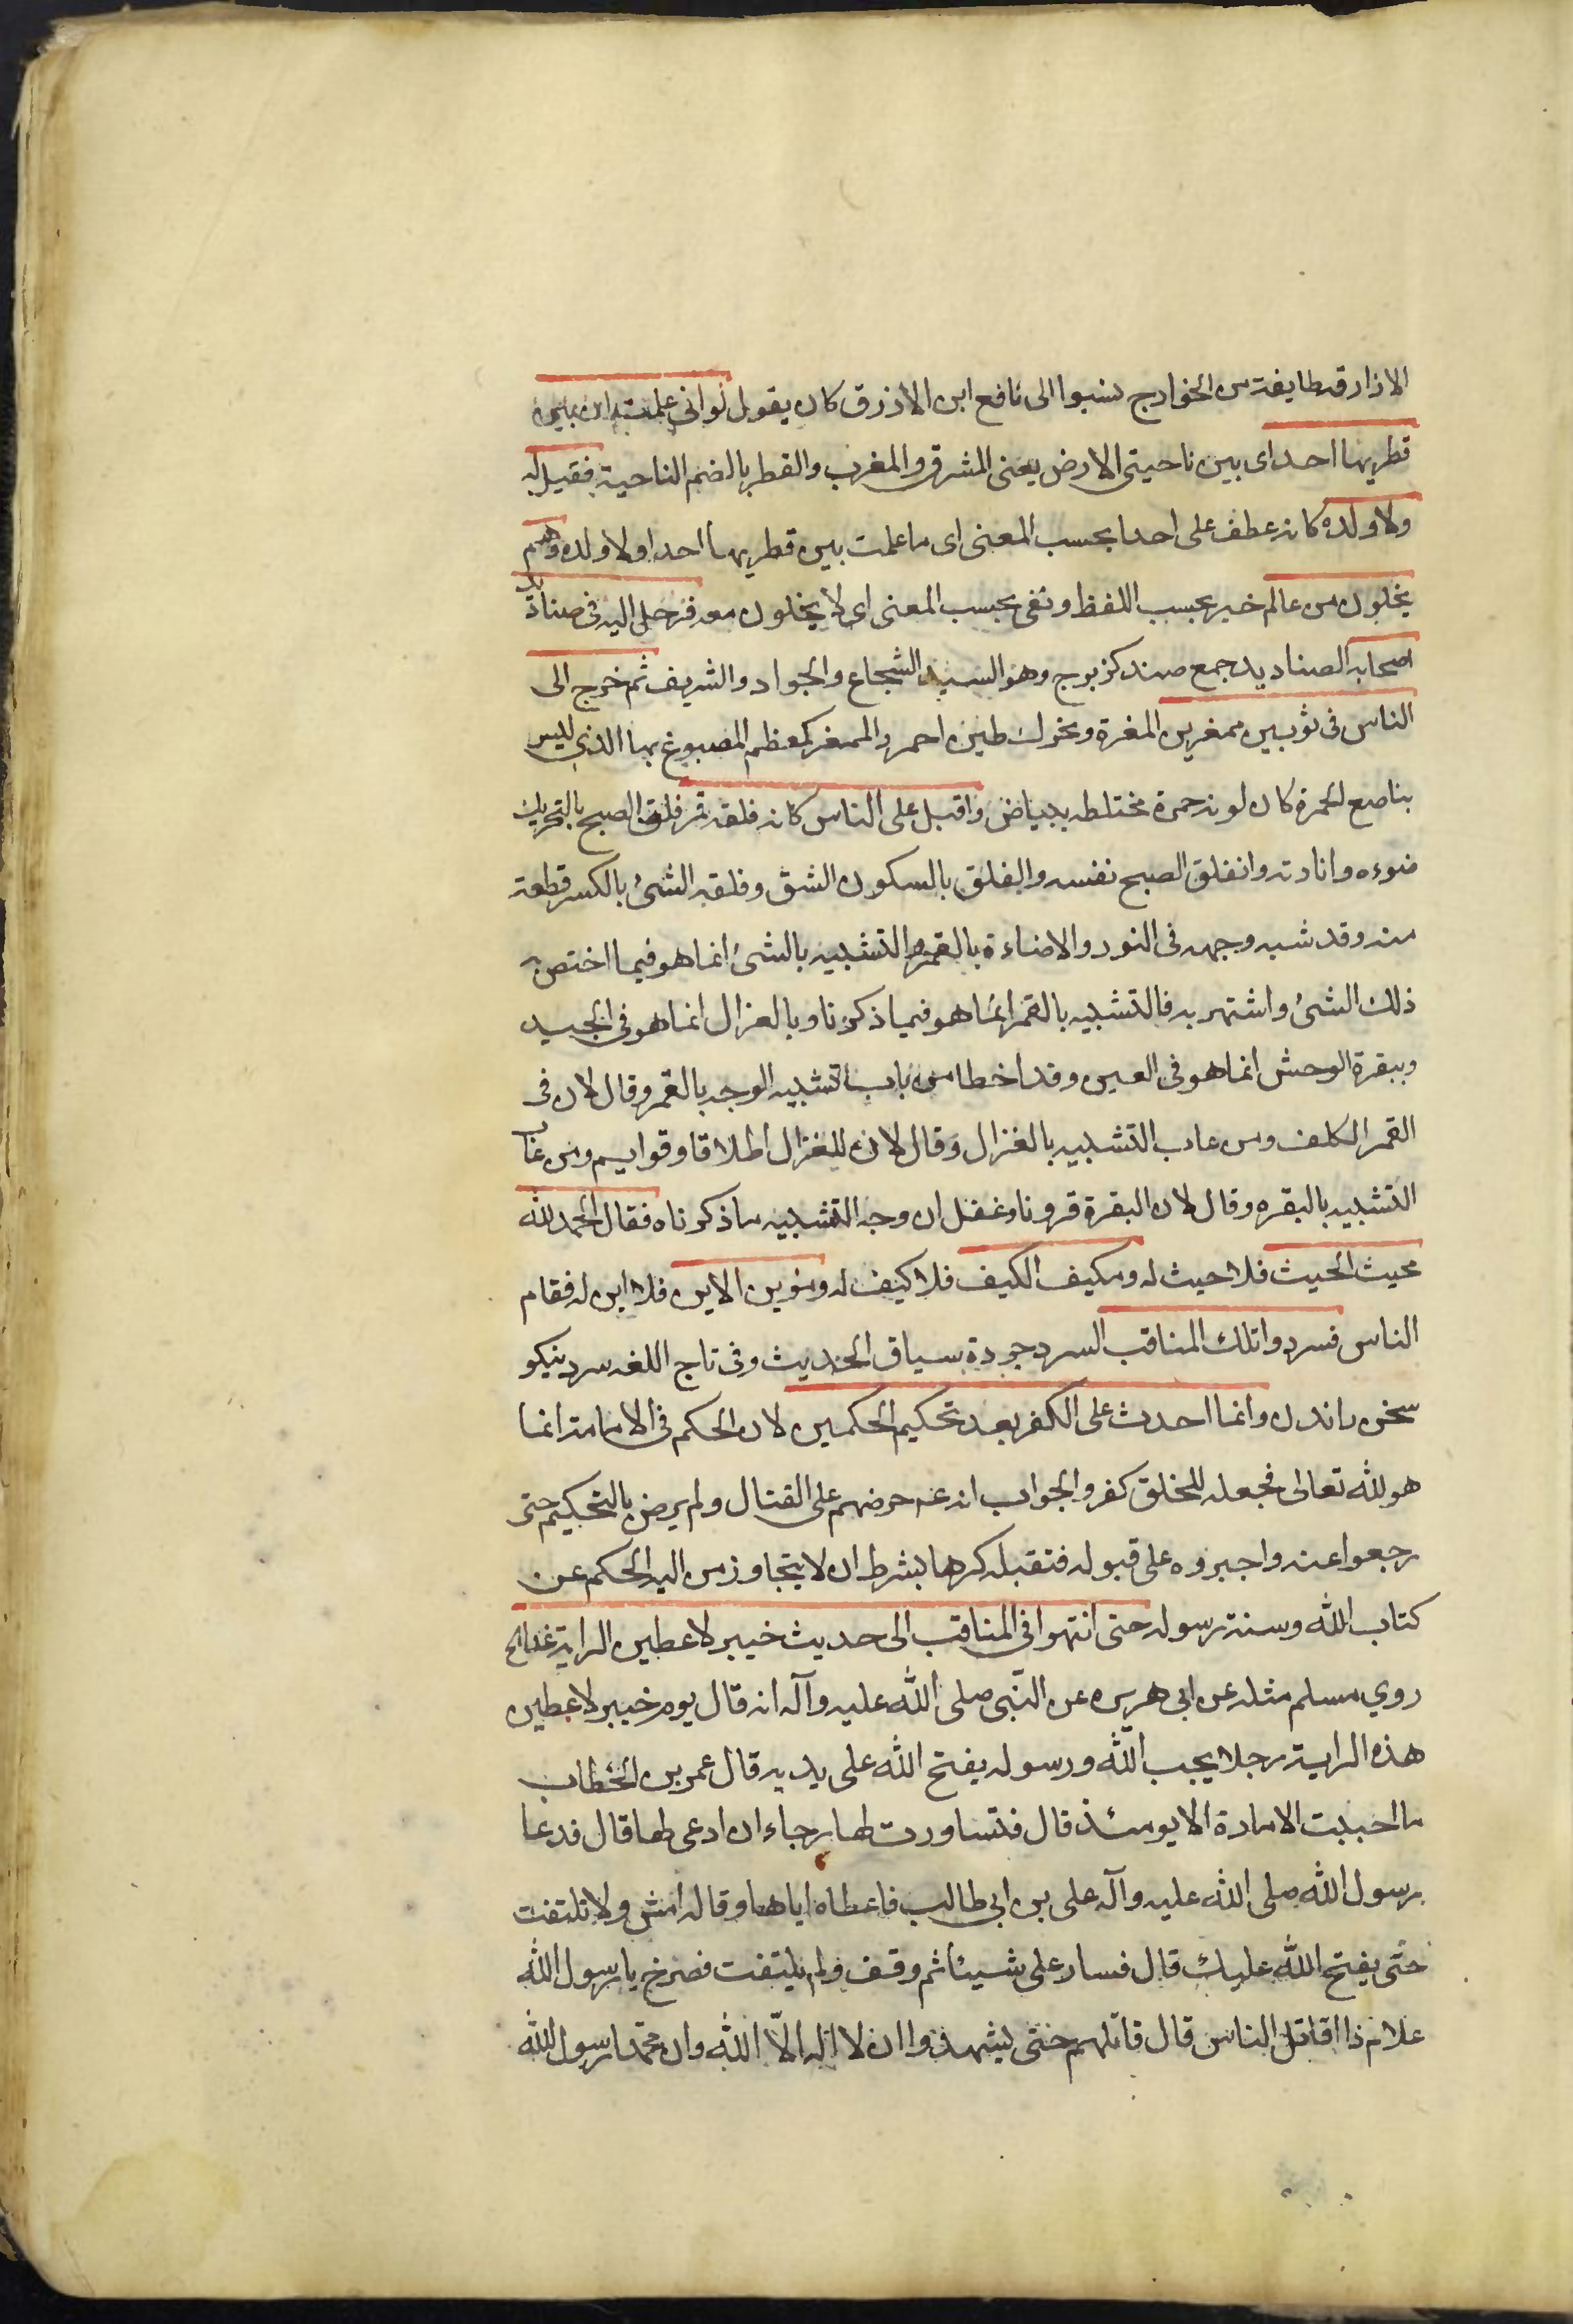 الازارقة طايفة من الخوارج نسبوا الى نافع ابن الازرق كان يقول لو انى علمت ان بين
قطريها احد اى بين ناحيتى الارض يعنى المشرق والمغرب والقطر بالضم الناحية فقيل له
ولا ولده كانه عطف على احد بحسب المعنى اى ما علمت بين قطريها احدا ولا ولده وهم
يخلون من عالم خبر بحسب اللفظ ونفى بحسب المعنى اى لا يخلون منه فرحل اليه فى صناديد
اصحابه الصناديد جمع صندد كزبرج وهو السيد الشجاع والجواد والشريف ثم خرج الى
الناس فى ثوبين ممغرين المغرة ويحرك طين احمر والممغر كمعظم المصبوغ بها الذى ليس
بناصع الحمرة كان لونه حمرة مختلطه ببياض واقبل على الناس كانه فلقة قمر فلق الصبح بالتحريك
ضوءه وانارته وانفلق الصبح نفسه والفلق بالسكون الشق وفلقه الشئ بالكسر قطعة
منه وقد شبه وجهه فى النور والاضاءة بالقمر والتشبيه بالشئ انما هو فيما اختص به
ذلك الشئ واشتهر به فالتشبيه بالقمر انما هو فيما ذكرنا وبالغزال انما هو فى الجيد
وببقرة الوحش انما هو فى العين وقد اخطا من عاب تشبيه الوجه بالقمر وقال لان فى
القمر الكلف ومن عاب التشبيه بالغزال وقال لان للغزال اظلافا وقوايم ومن عاب
التشبيه بالبقره وقال لان البقرة قرونا وغفل ان وجه التشبيه ما ذكرناه فقال الحمد لله
محيث الحيث فلا حيث له ومكيف الكيف فلا كيف له ومؤين الاين فلا اين له فقام
الناس فسردوا تلك المناقب السرد جودة سياق الحديث وفى تاج اللغه سرد نيكو
سخن راندن وانما احدث على الكفر بعد تحكيم الحكمين لان الحكم فى الامامة انما
هو لله تعالى فجعله للخلق كفر والجواب انه عم حرضهم على القتال ولم يرض بالتحكيم حتى
رجعوا عنه واجبروه على قبوله فتقبله كرها بشرط ان لا يتجاوز من اليه الحكم عن
كتاب الله وسنة رسوله حتى انتهوا فى المناقب الى حديث خيبر لاعطين الراية غدا الخ
روي مسلم مثله عن ابى هريره عن النّبى صلى الله عليه وآله انه قال يوم خيبر لاعطين
هذه الراية رجلا يحب الله ورسوله يفتح الله على يديه قال عمر بن الخطاب
ما احببت الامارة الا يومئذ قال فتساورت لها رجاء ان ادعى لها قال فدعا
رسول الله صلى الله عليه وآله على بن ابى طالب فاعطاه اياها وقال امش ولا تلتفت
حتى يفتح الله عليك قال فسار على شيئا ثم وقف ولم يلتفت فصرخ يا رسول الله
علام ذا اقاتل الناس قال قاتلهم حتى يشهدوا ان لا اله الّا الله وان محمّدا رسول الله